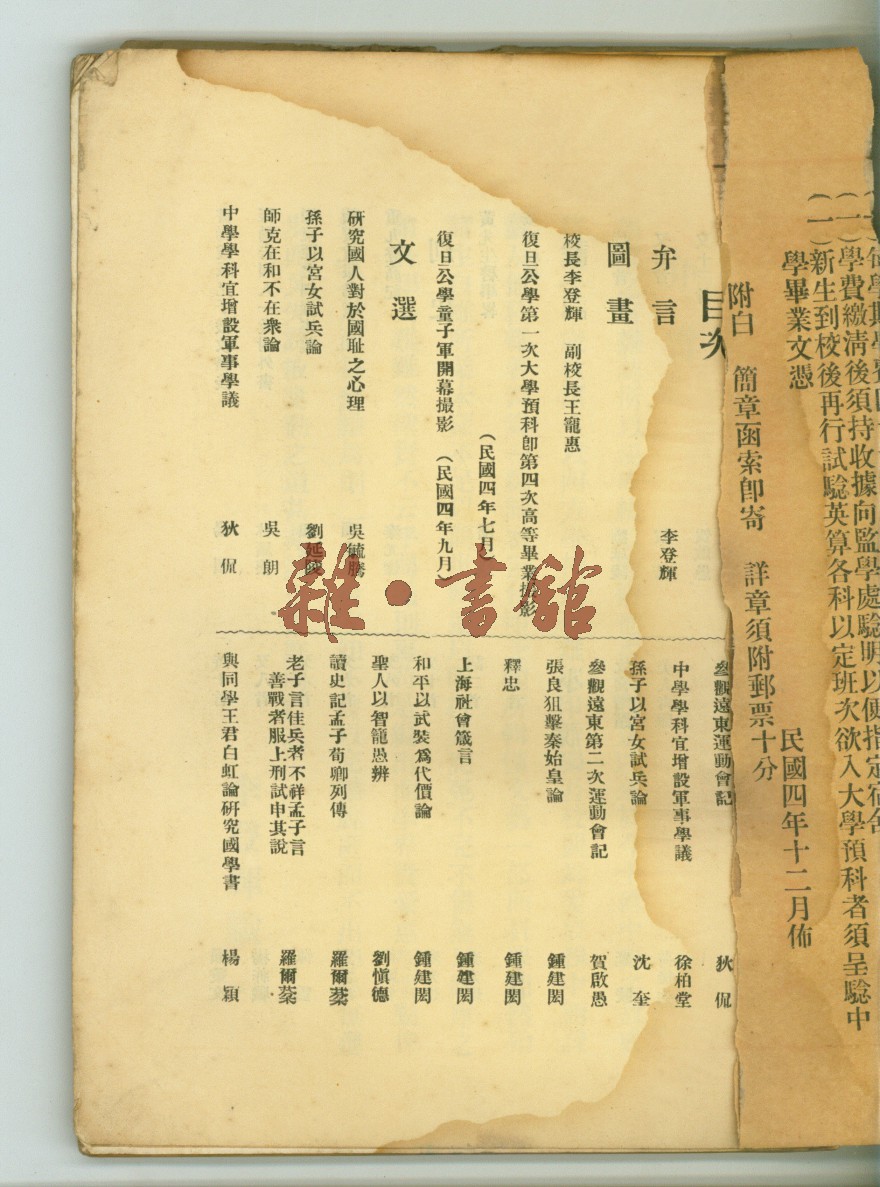 學費繳清後須持收據向監學處驗明以便指定宿舍
(一)新生到校後再行試驗英算各科以定班次欲入大學預科者須呈驗中
學畢業文憑
民國四年十二月佈
附白 簡章函索卽寄 詳章須附郵票十分
目次
弁言
李登輝
圖畫
校長李登輝 副校長王寵惠
復旦公學第一次大學預科卽第四次高等畢業攝影
(民國四年七月)
復旦公學童子軍開幕撮影 (民國四年九月)
文選
硏究國人對於國耻之心理 吳毓騰
孫子以宮女試兵論 劉延陵
師克在和不在衆論 吳朗
中學學科宜增設軍事學議 狄侃
參觀遠東運動會記 狄侃
中學學科宜增設軍事學議 徐柏堂
孫子以宮女試兵論 沈奎
參觀遠東第二次運動會記 賀啟愚
張良狙擊秦始皇論 鍾建閎
釋忠 鍾建閎
上海社會箴言 鍾建閎
和平以武裝爲代價論 鍾建閎
聖人以智籠愚辨 劉愼德
讀史記孟子荀卿列傳 羅爾棻
老子言佳兵者不祥孟子言
善戰者服上刑試申其說 羅爾棻
與同學王君白虹論硏究國學書 楊穎
雜·書館